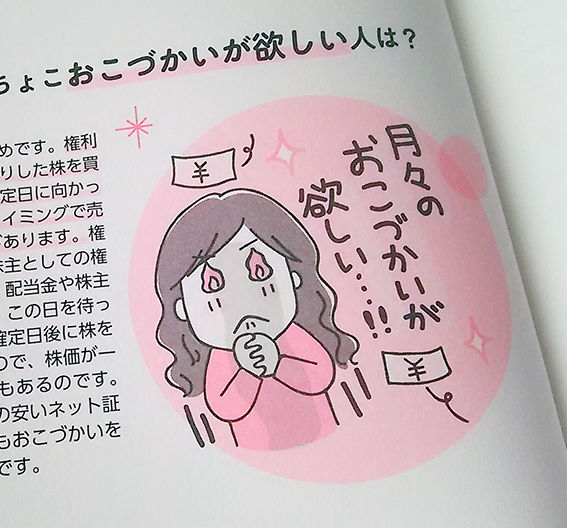 ちょこおこづかいが欲しい人は？
めです。権利
りした株を買
定日に向かっ
イミングで売
があります。権
株主としての権
配当金や株主
この日を待っ
確定日後に株を
ので、株価が一
もあるのです。
の安いネット証
もおこづかいを
です。
¥
月々の
おこづかいが
欲しい…!!
¥